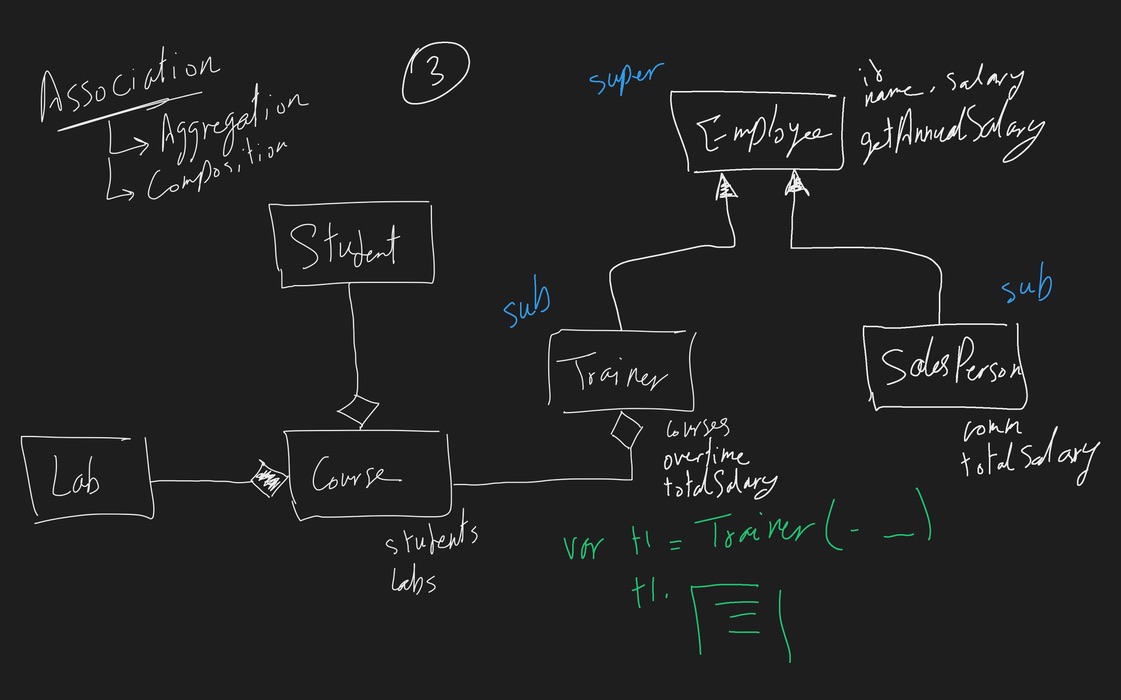 Association
Aggregation
Composition
3
super
Employee
id
name, salary
getAnnualSalary
Student
sub
Trainer
courses
overtime
totalSalary
sub
SalesPerson
comm
totalSalary
Lab
Course
students
Labs
var t1 = Trainer(- _)
t1.